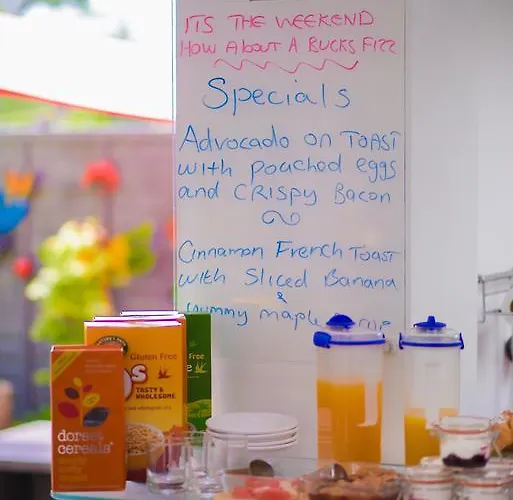 ITS THE WEEKEND
HOW ABOUT A BUCKS FIZZ
Specials
Advocado on TOAST
with pouched eggs
and CRISPY Bacon
Cinnamon French TOAST
with Sliced Banana
&
yummy maple
Gluten Free
TASTY &
WHOLESOME
Free
dorset
cereals